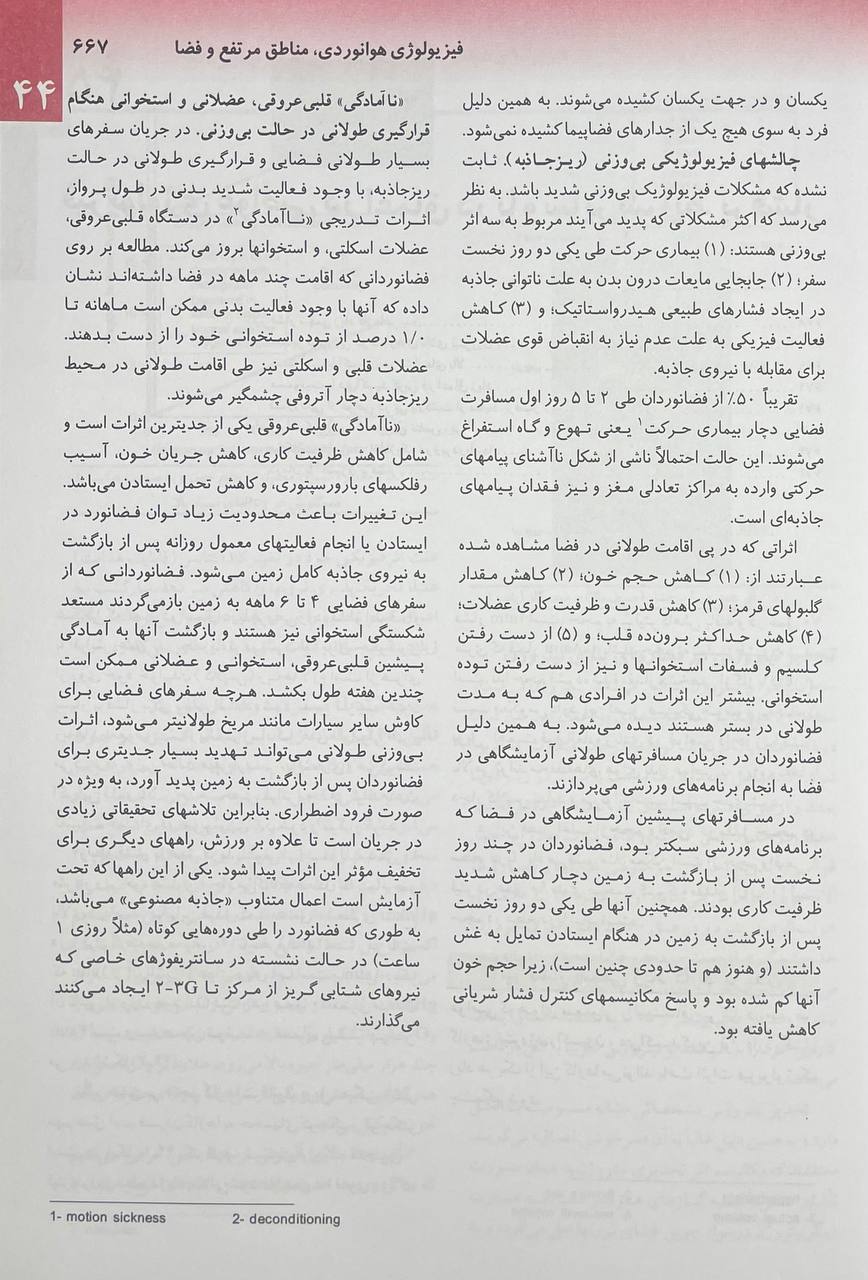 فیزیولوژی هوانوردی، مناطق مرتفع و فضا ۶۶۷
۴۴
یکسان و در جهت یکسان کشیده می‌شوند. به همین دلیل
فرد به سوی هیچ یک از جدارهای فضاپیما کشیده نمی‌شود.
چالشهای فیزیولوژیکی بی‌وزنی (ریزجاذبه). ثابت
نشده که مشکلات فیزیولوژیک بی‌وزنی شدید باشد. به نظر
می‌رسد که اکثر مشکلاتی که پدید می‌آیند مربوط به سه اثر
بی‌وزنی هستند: (۱) بیماری حرکت طی یکی دو روز نخست
سفر؛ (۲) جابجایی مایعات درون بدن به علت ناتوانی جاذبه
در ایجاد فشارهای طبیعی هیدرواستاتیک؛ و (۳) کاهش
فعالیت فیزیکی به علت عدم نیاز به انقباض قوی عضلات
برای مقابله با نیروی جاذبه.
تقریباً ۵۰٪ از فضانوردان طی ۲ تا ۵ روز اول مسافرت
فضایی دچار بیماری حرکت۱ یعنی تهوع و گاه استفراغ
می‌شوند. این حالت احتمالاً ناشی از شکل ناآشنای پیامهای
حرکتی وارده به مراکز تعادلی مغز و نیز فقدان پیامهای
جاذبه‌ای است.
اثراتی که در پی اقامت طولانی در فضا مشاهده شده
عبارتند از: (۱) کاهش حجم خون؛ (۲) کاهش مقدار
گلبولهای قرمز؛ (۳) کاهش قدرت و ظرفیت کاری عضلات؛
(۴) کاهش حداکثر برون‌ده قلب؛ و (۵) از دست رفتن
کلسیم و فسفات استخوانها و نیز از دست رفتن توده
استخوانی. بیشتر این اثرات در افرادی هم که به مدت
طولانی در بستر هستند دیده می‌شود. به همین دلیل
فضانوردان در جریان مسافرتهای طولانی آزمایشگاهی در
فضا به انجام برنامه‌های ورزشی می‌پردازند.
در مسافرتهای پیشین آزمایشگاهی در فضا که
برنامه‌های ورزشی سبکتر بود، فضانوردان در چند روز
نخست پس از بازگشت به زمین دچار کاهش شدید
ظرفیت کاری بودند. همچنین آنها طی یکی دو روز نخست
پس از بازگشت به زمین در هنگام ایستادن تمایل به غش
داشتند (و هنوز هم تا حدودی چنین است)، زیرا حجم خون
آنها کم شده بود و پاسخ مکانیسمهای کنترل فشار شریانی
کاهش یافته بود.
«ناآمادگی» قلبی‌عروقی، عضلانی و استخوانی هنگام
قرارگیری طولانی در حالت بی‌وزنی. در جریان سفرهای
بسیار طولانی فضایی و قرارگیری طولانی در حالت
ریزجاذبه، با وجود فعالیت شدید بدنی در طول پرواز،
اثرات تدریجی «ناآمادگی۲» در دستگاه قلبی‌عروقی،
عضلات اسکلتی، و استخوانها بروز می‌کند. مطالعه بر روی
فضانوردانی که اقامت چند ماهه در فضا داشته‌اند نشان
داده که آنها با وجود فعالیت بدنی ممکن است ماهانه تا
۱/۰ درصد از توده استخوانی خود را از دست بدهند.
عضلات قلبی و اسکلتی نیز طی اقامت طولانی در محیط
ریزجاذبه دچار آتروفی چشمگیر می‌شوند.
«ناآمادگی» قلبی‌عروقی یکی از جدیترین اثرات است و
شامل کاهش ظرفیت کاری، کاهش جریان خون، آسیب
رفلکسهای بارورسپتوری، و کاهش تحمل ایستادن می‌باشد.
این تغییرات باعث محدودیت زیاد توان فضانورد در
ایستادن یا انجام فعالیتهای معمول روزانه پس از بازگشت
به نیروی جاذبه کامل زمین می‌شود. فضانوردانی که از
سفرهای فضایی ۴ تا ۶ ماهه به زمین بازمی‌گردند مستعد
شکستگی استخوانی نیز هستند و بازگشت آنها به آمادگی
پیشین قلبی‌عروقی، استخوانی و عضلانی ممکن است
چندین هفته طول بکشد. هرچه سفرهای فضایی برای
کاوش سایر سیارات مانند مریخ طولانیتر می‌شود، اثرات
بی‌وزنی طولانی می‌تواند تهدید بسیار جدیتری برای
فضانوردان پس از بازگشت به زمین پدید آورد، به ویژه در
صورت فرود اضطراری. بنابراین تلاشهای تحقیقاتی زیادی
در جریان است تا علاوه بر ورزش، راههای دیگری برای
تخفیف مؤثر این اثرات پیدا شود. یکی از این راهها که تحت
آزمایش است اعمال متناوب «جاذبه مصنوعی» می‌باشد،
به طوری که فضانورد را طی دوره‌هایی کوتاه (مثلاً روزی ۱
ساعت) در حالت نشسته در سانتریفوژهای خاصی که
نیروهای شتابی گریز از مرکز تا ۲-۳G ایجاد می‌کنند
می‌گذارند.
1- motion sickness 2- deconditioning